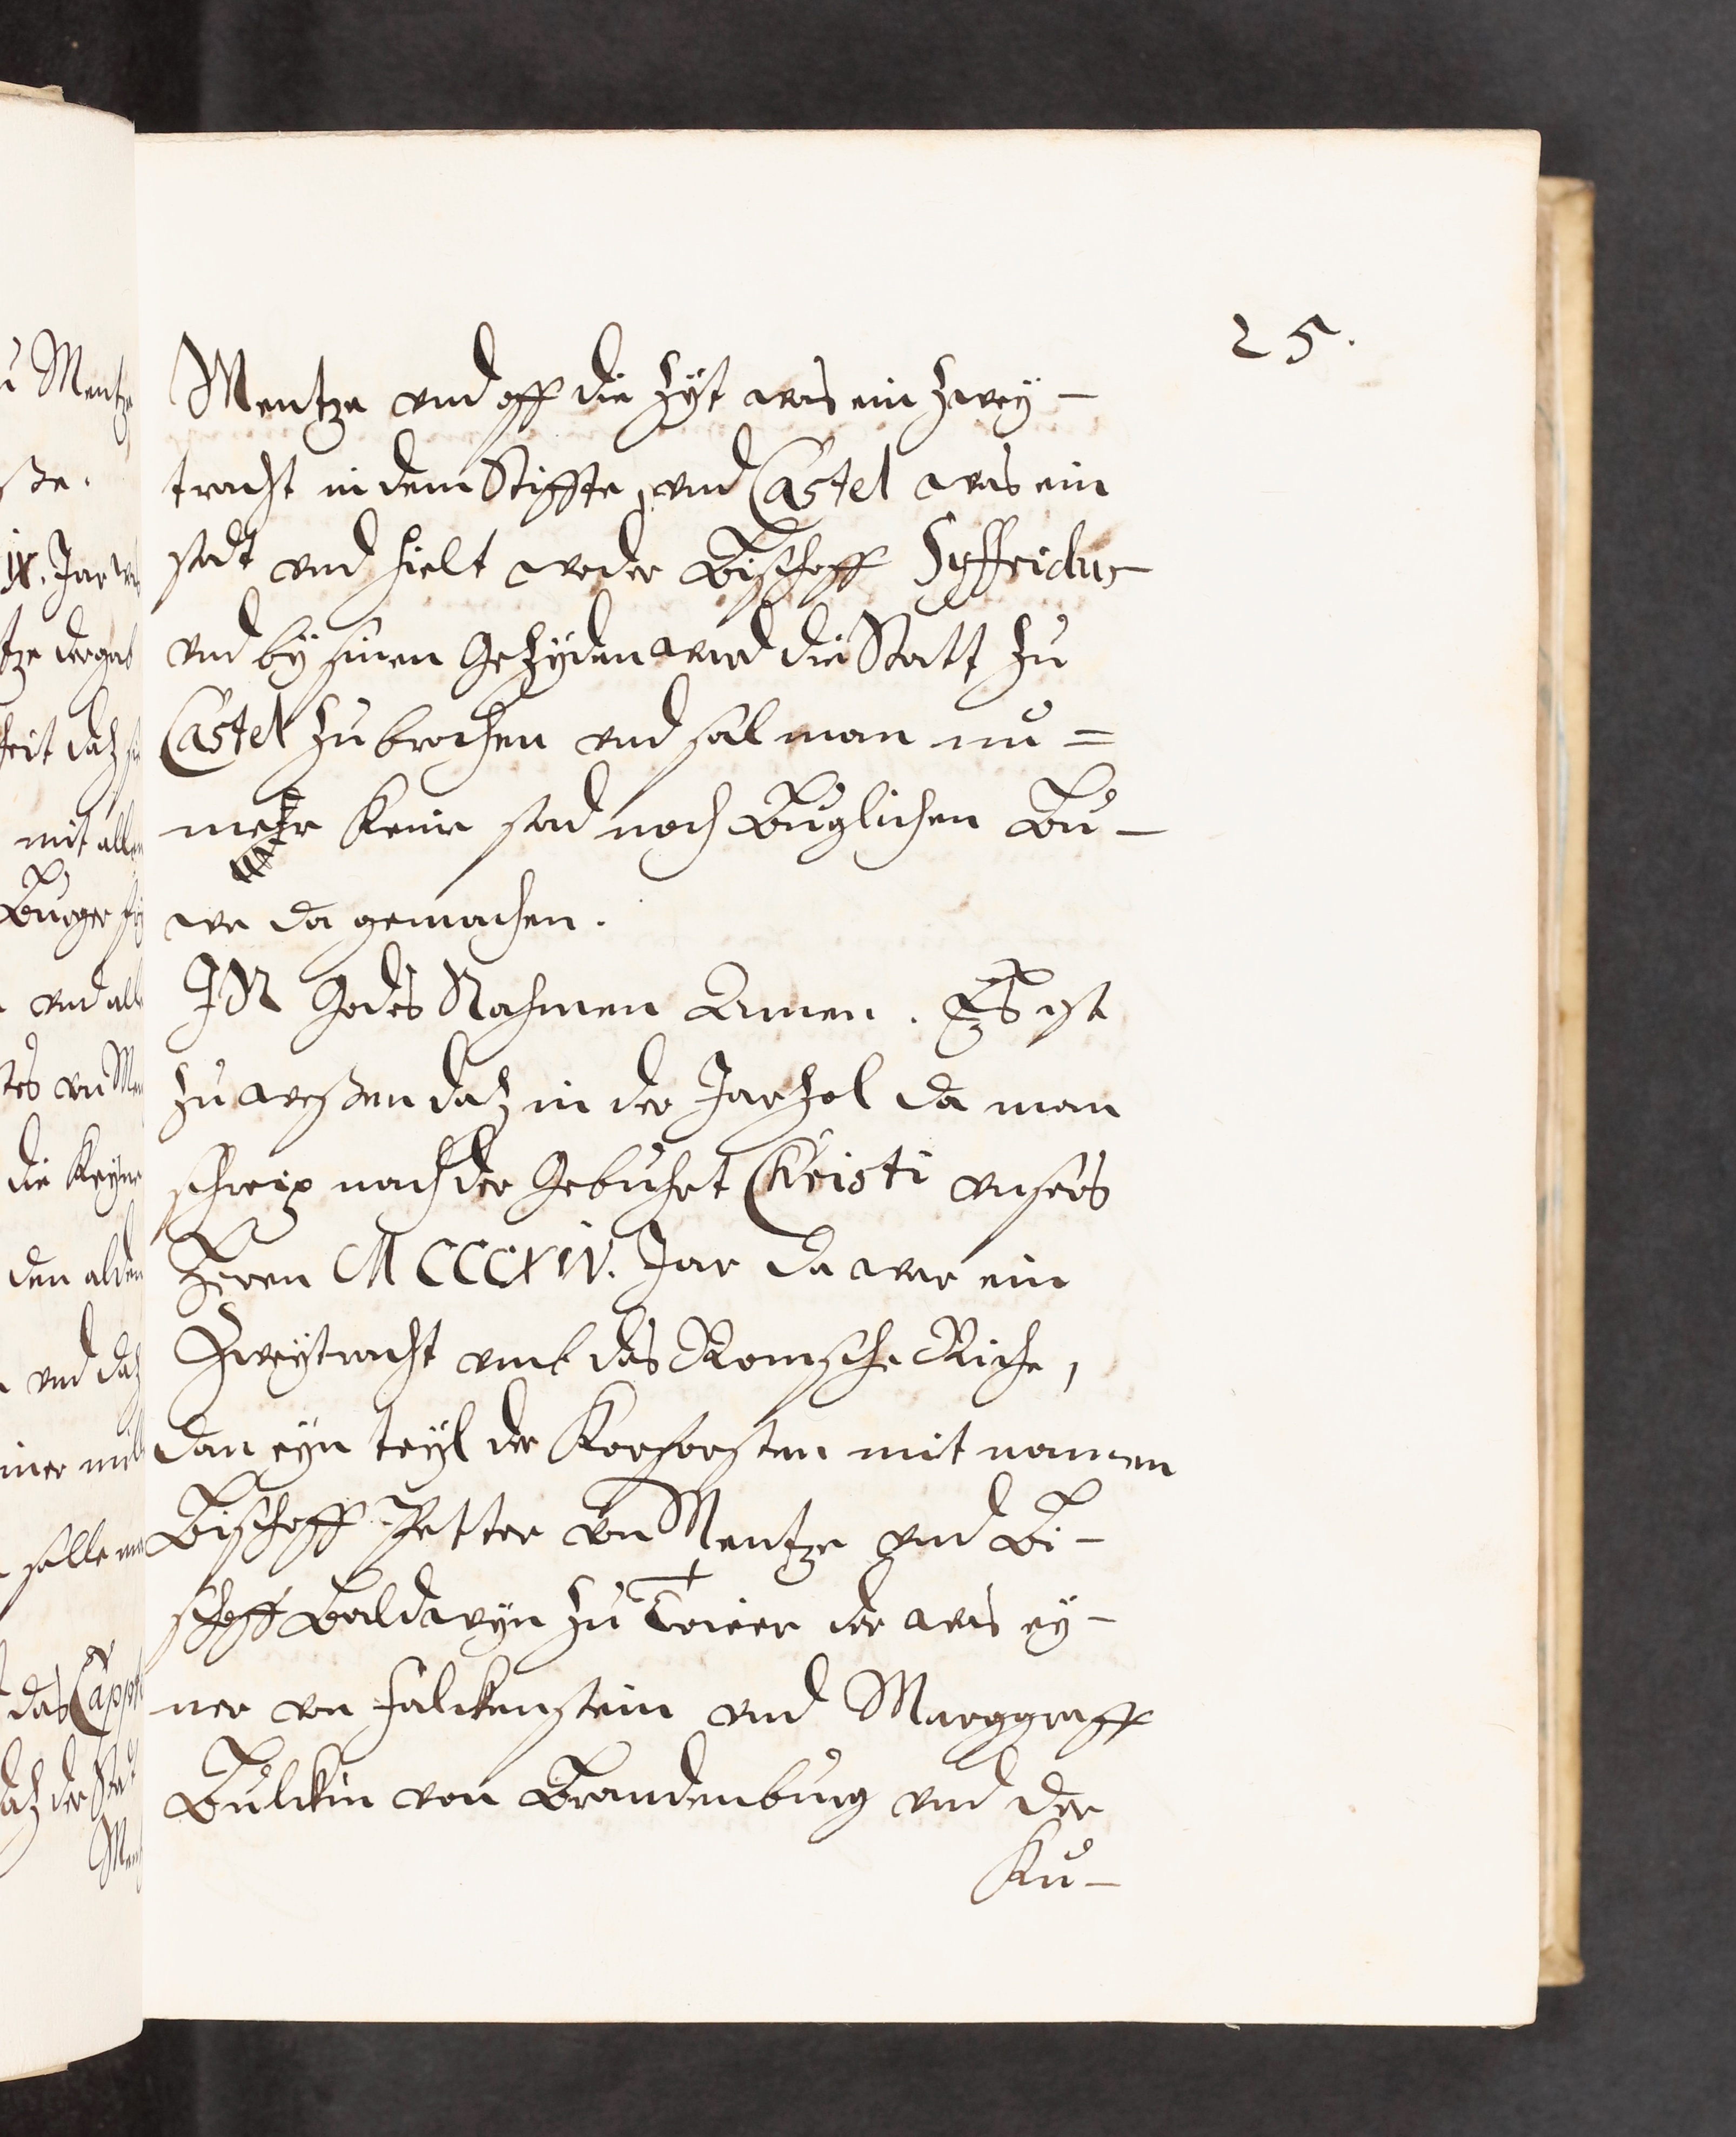 25.
Mentze vnd off die zyt was ein zwey-
tracht in dem Stiffte, vnd Castel was ein
stat vnd hielt weder Bischoff Syffridus
vnd by sinen Gezyden ward die Statt zu
Castel zubrochen vnd sal man nu=
mehr keine stad noch Buglichen Bu-
we da gemachen.
IN Godes Nahmen Amen. Es ist
zu weßen daz in der Jarzal da man
schreip nach der Geburt Christi vnsers
Heren MCCCXIV. Jar da war ein
Zweytracht vmb das Romsche Riche,
dan eyn teyl der Korforsten mit namen
Bischoff Petter von Mentze vnd Bi-
schoff Baldwyn zu Trier der was ey-
ner von Falckenstein vnd Marggraff
Bulckin von Brandenburg vnd der
Ku-